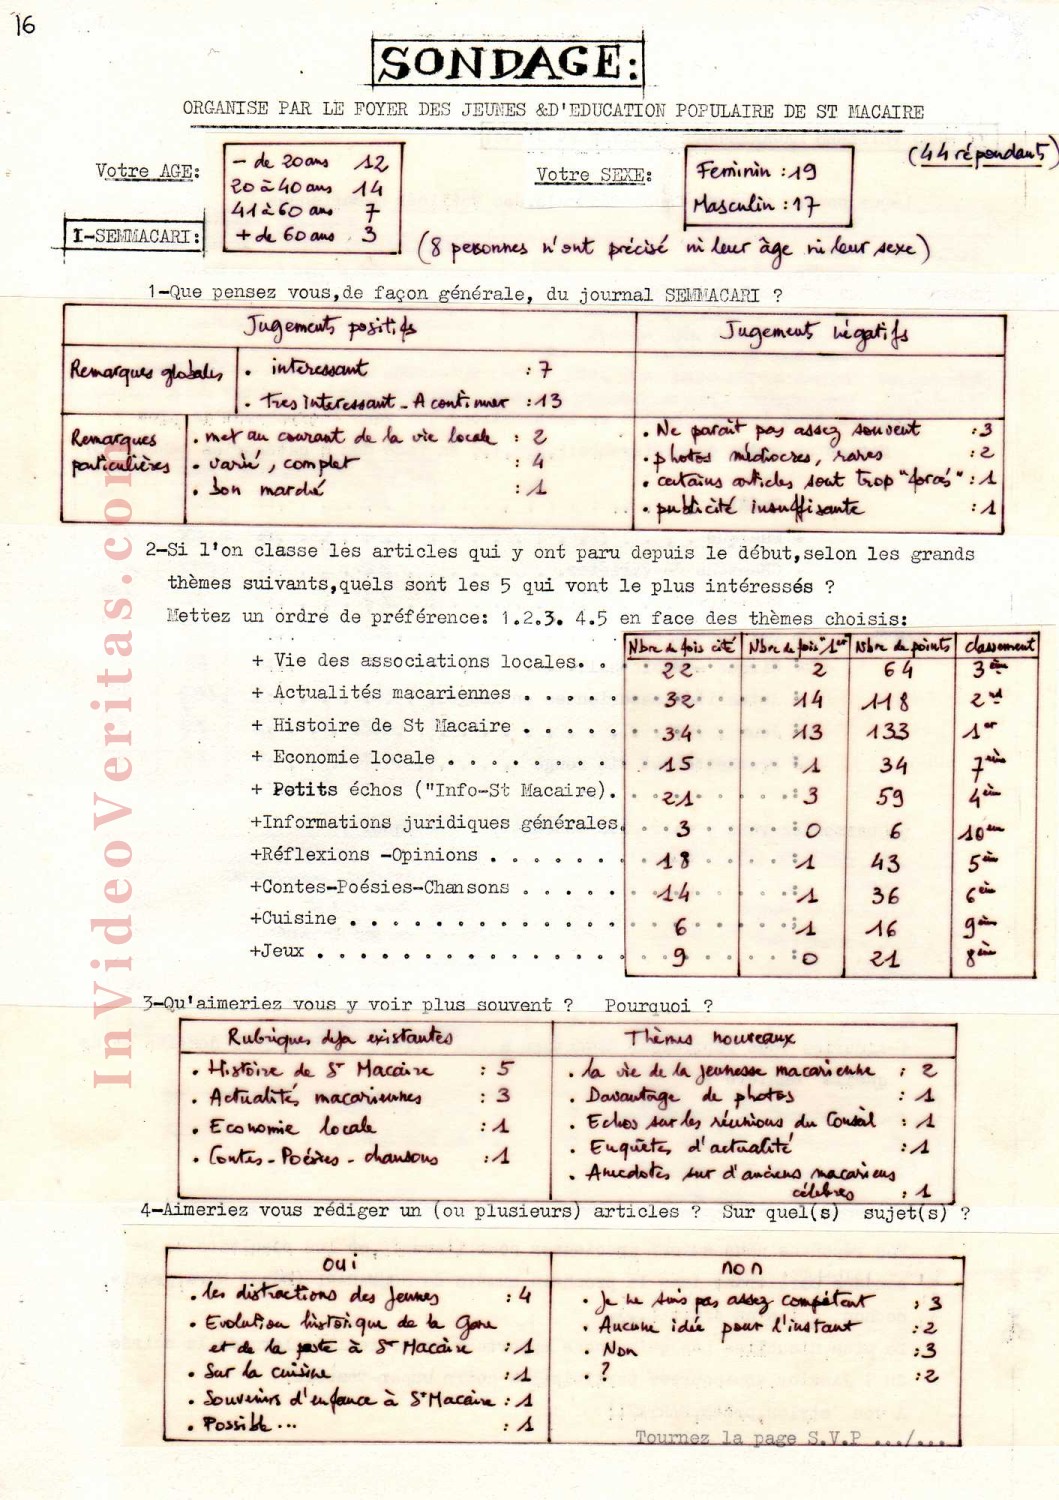 16
SONDAGE:
ORGANISE PAR LE FOYER DES JEUNES &D'EDUCATION POPULAIRE DE ST MACAIRE
(44 répondants)
Votre AGE:
- de 20 ans 12
20 à 40 ans 14
41 à 60 ans 7
+ de 60 ans . 3
Votre SEXE:
Feminin : 19
Masculin : 17
(8 personnes n'ont précisé ni leur âge ni leur sexe)
I-SEMMACARI:
1-Que pensez vous,de façon générale, du journal SEMMACARI ?
Jugements positifs Jugement négatifs
Remarques globales . interessant : 7
. Tres interessant - A continuer : 13
Remarques particulières
. met au courant de la vie locale : 2
. varié, complet : 4
. bon marché : 1
. Ne parait pas assez souvent : 3
. photos médiocres, rares : 2
. certains articles sont trop "forcés" : 1
. publicité insuffisante : 1
2-Si l'on classe les articles qui y ont paru depuis le début,selon les grands
thèmes suivants,quels sont les 5 qui vont le plus intéressés ?
Mettez un ordre de préférence: 1.2.3. 4.5 en face des thèmes choisis:
Nbre de fois cité Nbre de fois "1er" Nbre de points classement
+ Vie des associations locales. . 22 2 64 3ème
+ Actualités macariennes . . . . . 32 14 118 2nd
+ Histoire de St Macaire . . . . . 34 13 133 1er
+ Economie locale . . . . . . . . 15 1 34 7ème
+ Petits échos ("Info-St Macaire). 21 3 59 4ème
+Informations juridiques générales. 3 0 6 10ème
+Réflexions -Opinions . . . . . . . 18 1 43 5ème
+Contes-Poésies-Chansons . . . . . 14 1 36 6ème
+Cuisine . . . . . . . . . . . . . 6 1 16 9ème
+Jeux . . . . . . . . . . . . . . . 9 0 21 8ème
3-Qu'aimeriez vous y voir plus souvent ? Pourquoi ?
Rubriques deja existantes Thèmes nouveaux
. Histoire de St Macaire : 5
. Actualités macariennes : 3
. Economie locale : 1
. Contes - Poésies - chansons : 1
. la vie de la jeunesse macarienne : 2
. Davantage de photos : 1
. Echos sur les réunions du Conseil : 1
. Enquêtes d'actualité : 1
. Anecdotes sur d'anciens macariens
célèbres : 1
4-Aimeriez vous rédiger un (ou plusieurs) articles ? Sur quel(s) sujet(s) ?
oui non
. les distractions des Jeunes : 4
. Evolution historique de la Gare
et de la poste à St Macaire : 1
. Sur la cuisine : 1
. Souvenirs d'enfance à St Macaire : 1
. Possible... : 1
. Je ne suis pas assez compétent : 3
. Aucune idée pour l'instant : 2
. Non : 3
. ? : 2
Tournez la page S.V.P .../...
InVideoVeritas.com